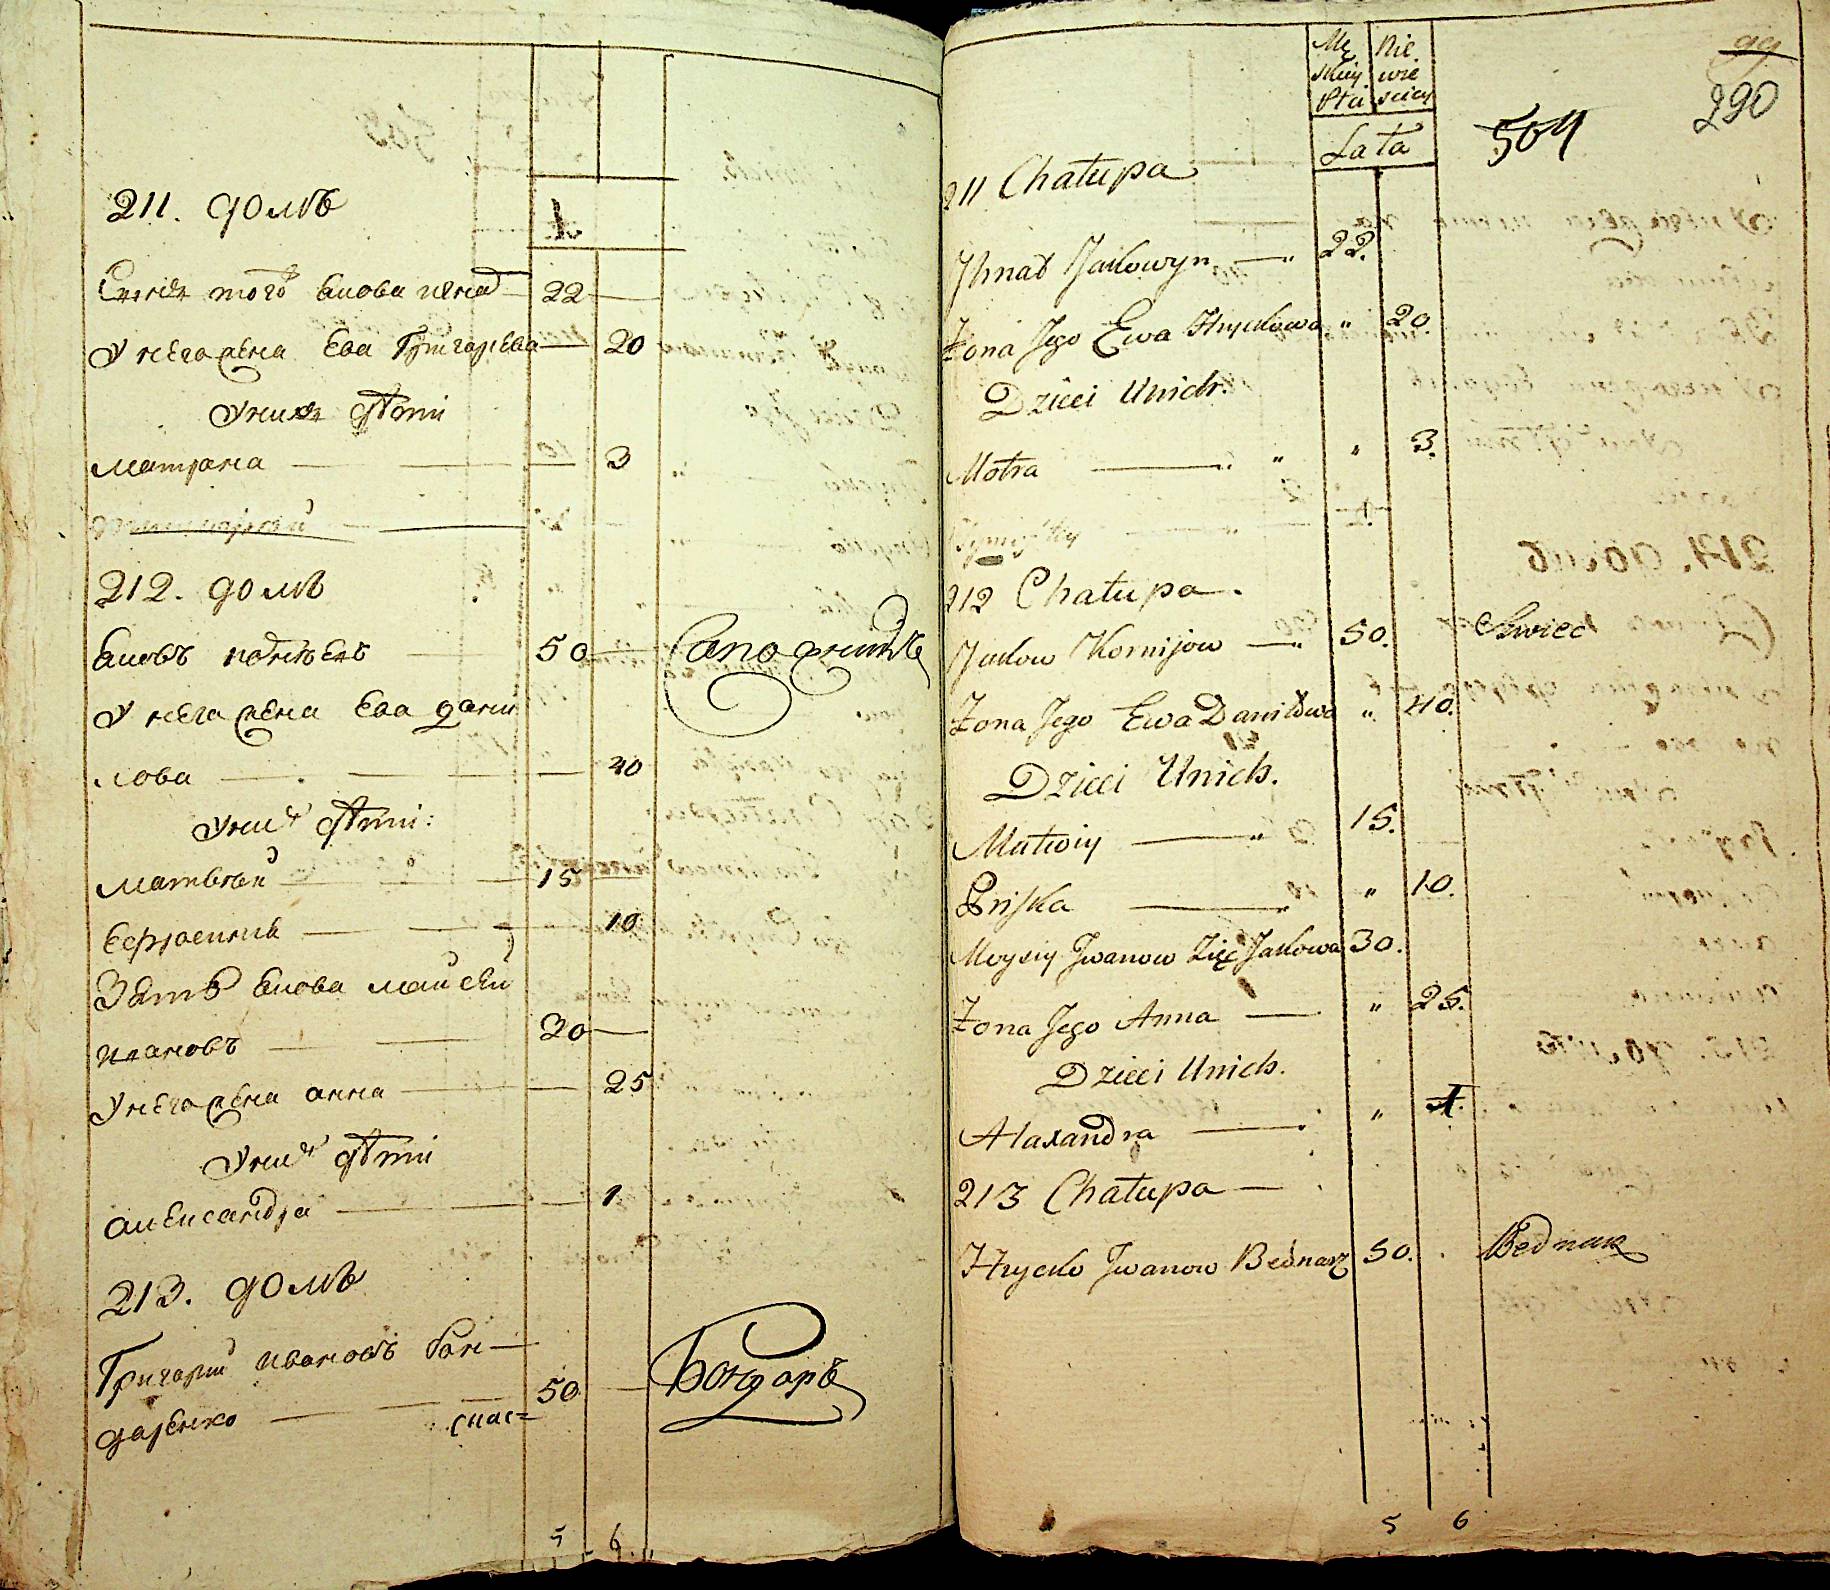 211. домъ
1
того Якова Игнат 22
У него жена Ева Григорьева 20
У них дѣти
Матрона 3
212. домъ
Яковъ 50 Сапожникъ
У него жена Ева Дани
лова 40
У них дѣти:
Матвѣй 15
Ефросиния 10
Зять Якова Мойсей
Ивановъ 30
У него жена Анна 25
У них дѣти
Александра 1
213. домъ
Григорий Ивановъ Бон
даренко 50 Бондарь
5 6
Mę Nie
skiey wie
Płci sciey
Lata
99
290
504
211 Chałupa
Jhnat Jakowyn 22.
Żona Jego Ewa Hryckowa " 20.
Dzieci Unich.
Motra " " 3.
212 Chałupa.
Jakow Kornijow 50. Szwiec
Żona Jego Ewa Daniłowa " 40.
Dzieci Unich.
Matwiy 15.
Priska " 10.
Moysiy Jwanow Zięć Jakowa 30.
Żona Jego Anna " 25.
Dzieci Unich.
Alaxandra " 1.
213 Chałupa
Hrycko Jwanow Bednarz 50. Bednarz
5 6